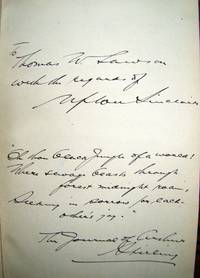 To
Thomas W. Lawson
with the regards of
Upton Sinclair
"Oh thou black jungle of a world!
Where savage beasts through
forest midnight roam,
Seeking in sorrow for each
other's joy."
The Journal of Arthur
Stirling